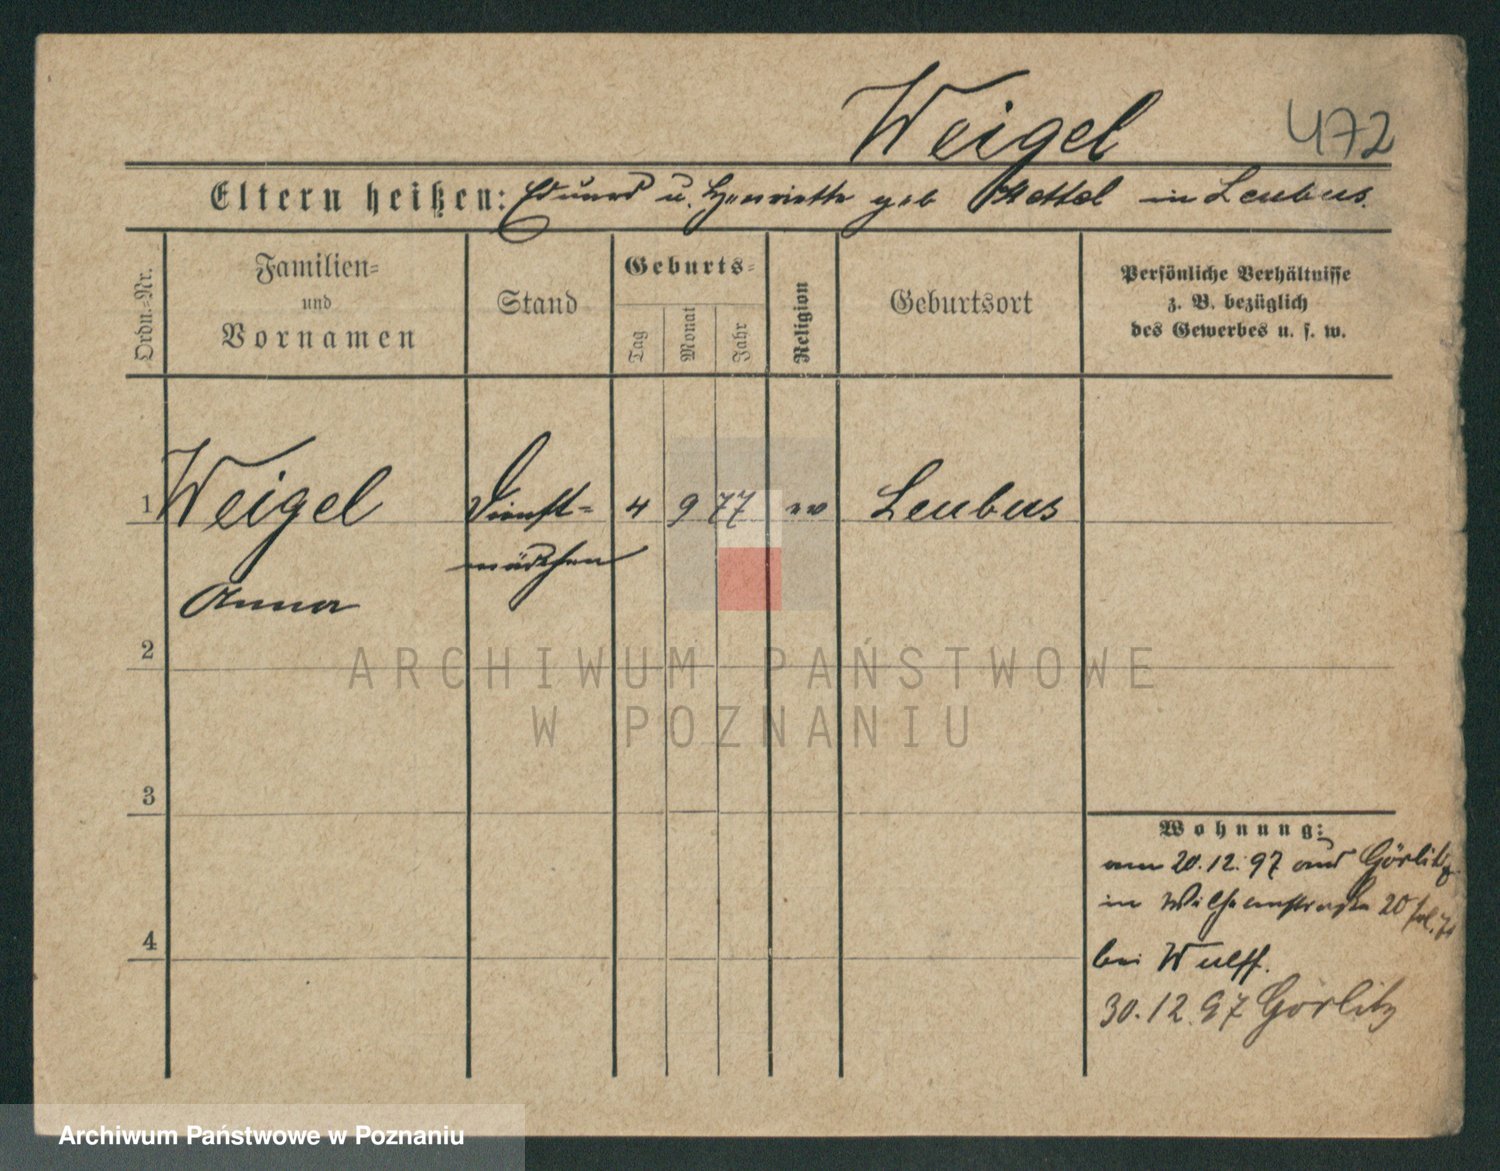 Weigel
472
Eltern heißen: Eduard u. Henriette geb in Leubus.
Ordn.-Nr.
Familien-
und
Vornamen
Stand
Geburts-
Tag
Monat
Jahr
Religion
Geburtsort
Persönliche Verhältnisse
z. B. bezüglich
des Gewerbes u. s. w.
1 Weigel Dienst- 4 9 77 ev Leubus
mädchen
Anna
2
ARCHIWUM PAŃSTWOWE
W POZNANIU
3
Wohnung:
am 20.12.97 aus Görlitz
in Wilhelmstraße 20
4
bei Wulff.
30.12.97 Görlitz
Archiwum Państwowe w Poznaniu